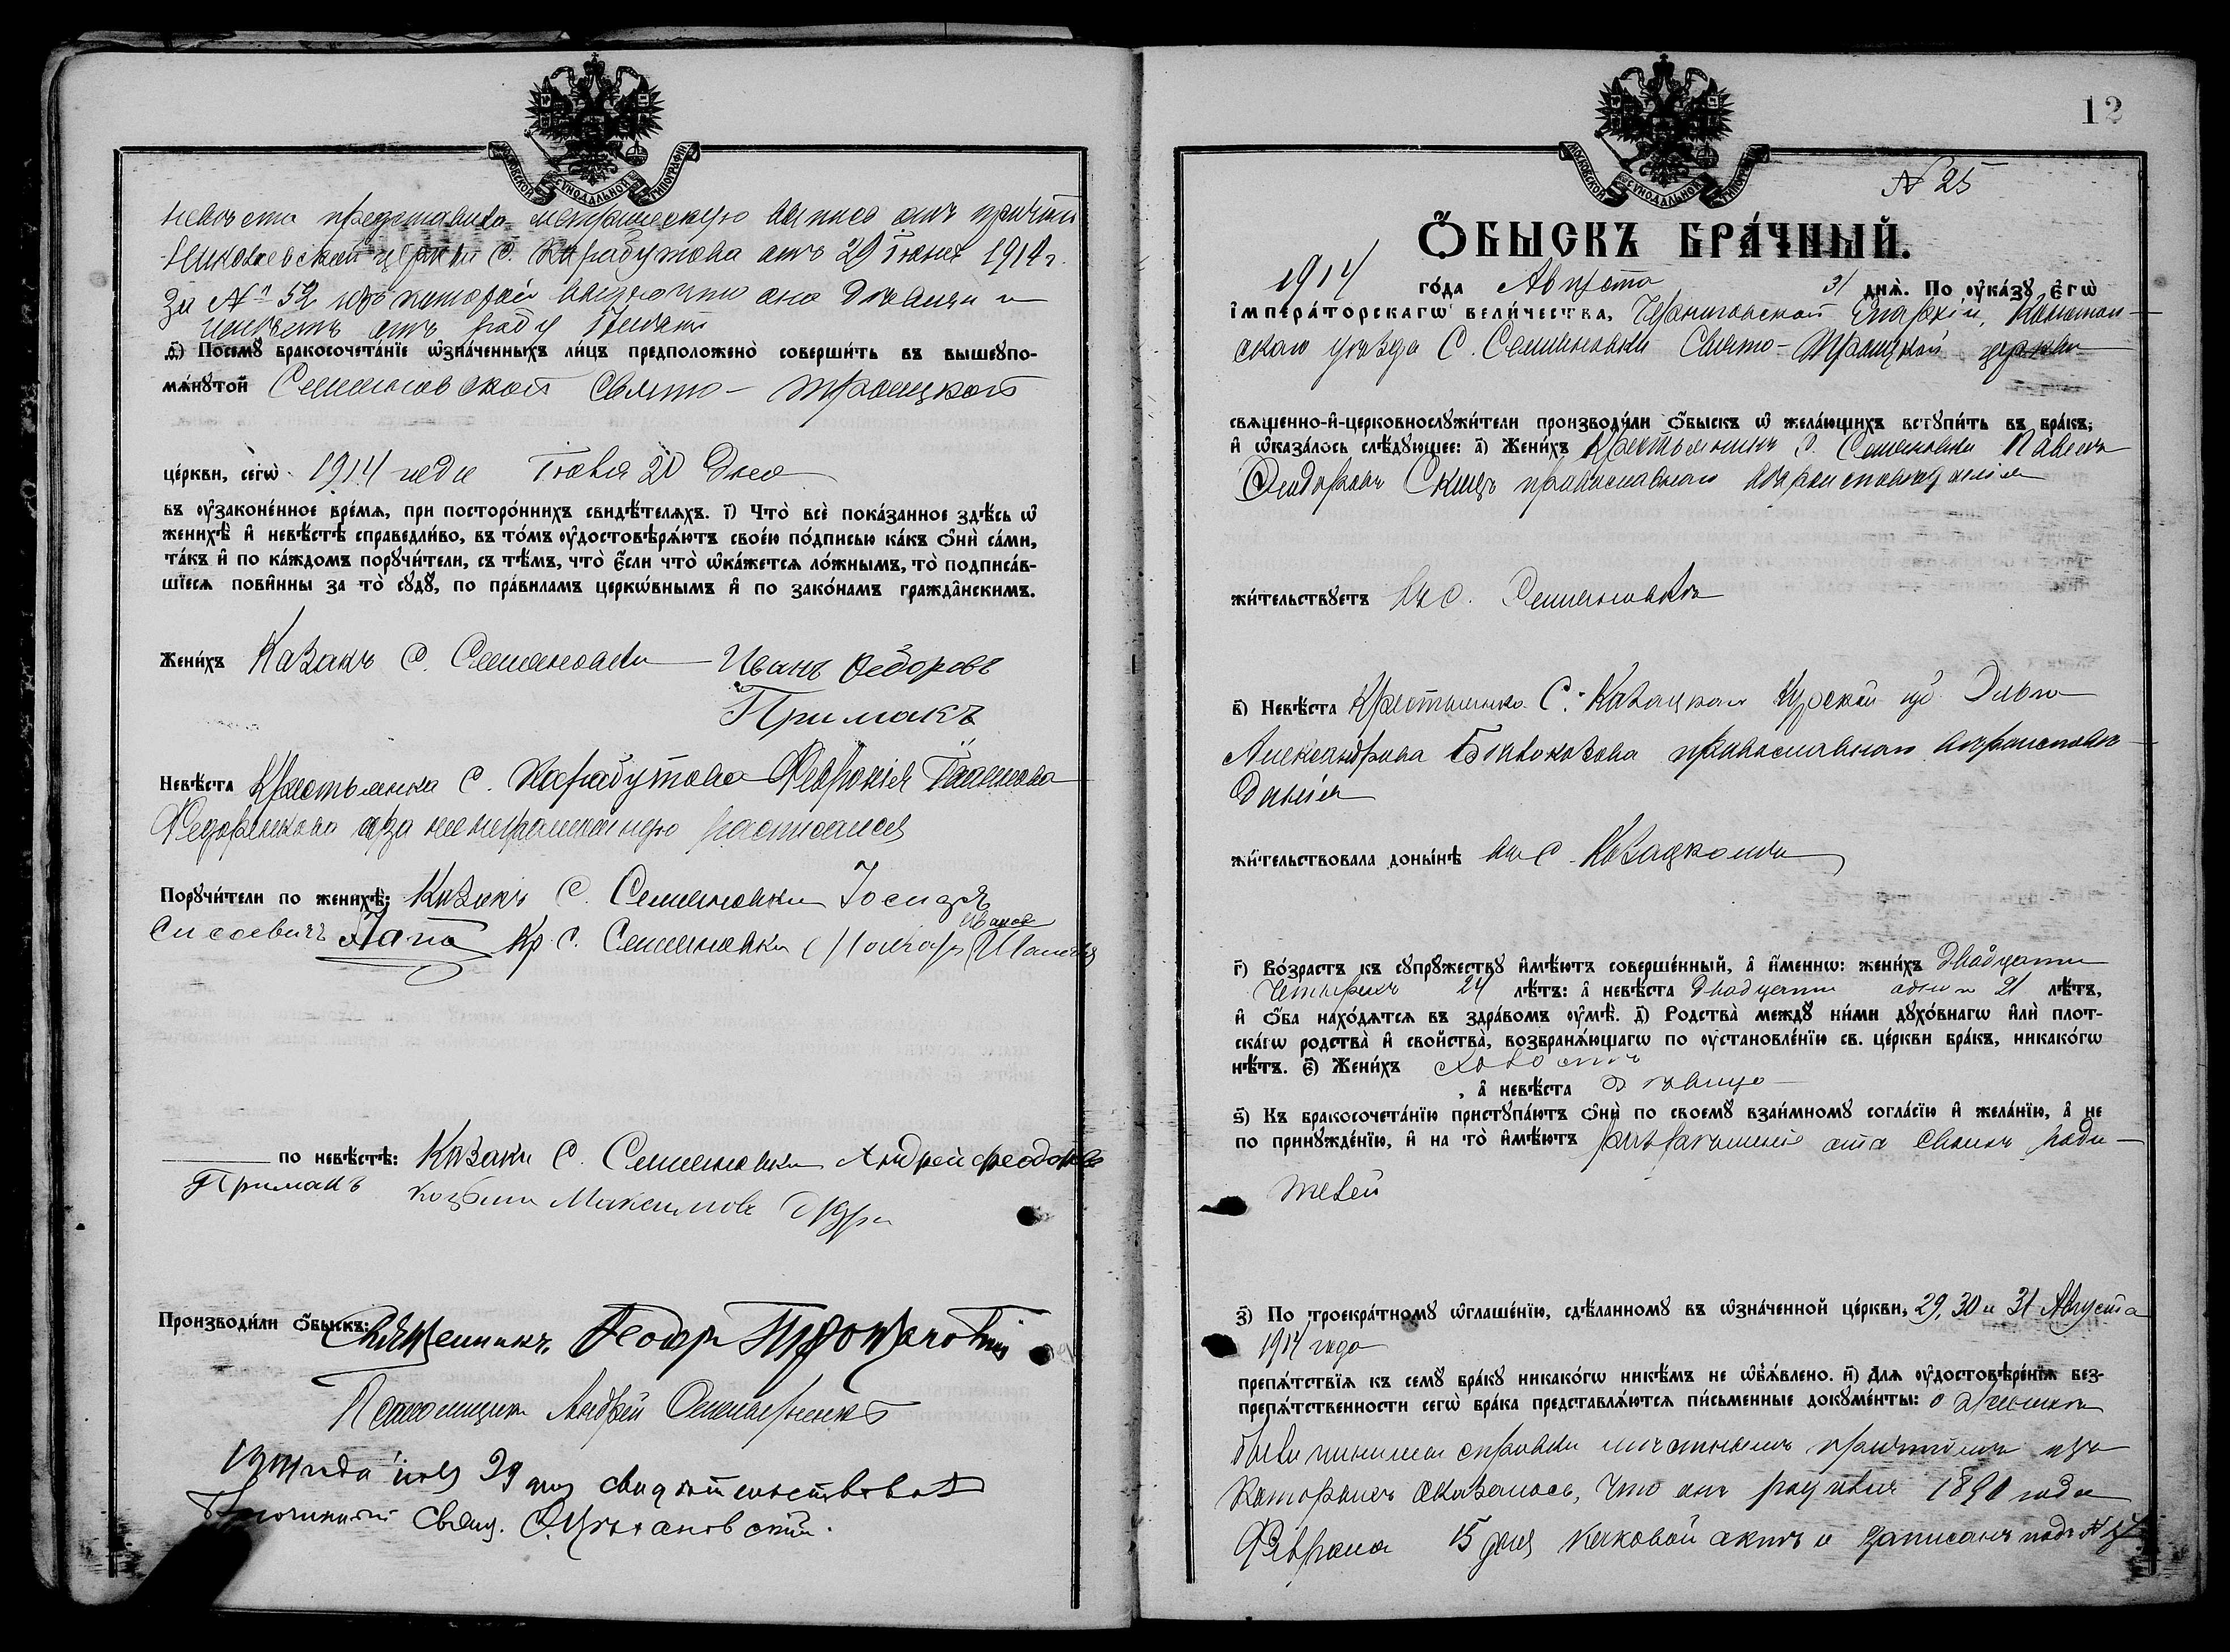 МОСКОВСКОЙ СѴНОДАЛЬНОЙ ТИПОГРАФІИ
невѣста представила метрическую выпись отъ причта
Николаевской церкви С. Карабутова отъ 29 Іюня 1914 г.
за № 52 изъ которой видно что она дѣвица и
имѣетъ отъ роду
д҃) Посемꙋ бракосочета́нїе ѡ҆зна́ченныхъ ли́цъ предположено̀ соверши́ть въ вышеꙋпо-
мѧ́нꙋтой Семеновской Свято - Троицкой
це́ркви, сегѡ̀ 1914 года Іюля 20 дня
въ ᲂу҆зако́ненное вре́мѧ, при посторо́ннихъ свидѣ́телѧхъ. і҃) Что̀ всѐ пока́занное здѣ́сь ѡ҆
женихѣ̀ и҆ невѣ́стѣ справедли́во, въ то́мъ ᲂу҆достовѣрѧ́ютъ свое́ю по́дписью ка́къ ѻ҆нѝ са́ми,
та́къ и҆ по ка́ждомъ порꙋчи́тели, съ тѣ́мъ, что̀ є҆́сли что̀ ѡ҆ка́жетсѧ ло́жнымъ, то̀ подписа́в-
шїесѧ пови́нны за то̀ сꙋдꙋ̀, по пра́виламъ церкѡ́внымъ и҆ по зако́намъ гражда́нскимъ.
Жени́хъ Казакъ С. Семеновки Иванъ Ѳедоровъ
Примакъ
Невѣ́ста Крестьянка С. Карабутова Февронія
Федоренкова а за нее неграмотную росписался
Порꙋчи́тели по женихѣ̀: Казакъ С. Семеновки
Сисоевичъ Лапа Кр. С. Семеновки
Иванов
по невѣ́стѣ: Казакъ С. Семеновки Андрей Феодоровъ
Примакъ Козьма Максимовъ
Производи́ли ѻ҆́быскъ: Священникъ Ѳеодоръ
Псаломщикъ Андрей
1914 года 29 дня свидѣтельствовалъ
Благочинный Свящ.
12
МОСКОВСКОЙ СѴНОДАЛЬНОЙ ТИПОГРАФІИ
№ 25
Ѻ҆́БЫСКЪ БРА́ЧНЫЙ.
1914 го́да Августа 31 днѧ̀. По ᲂу҆ка́зꙋ є҆гѡ̀
і҆мпера́торскагѡ вели́чества, Черниговской Епархіи, Конотоп-
скаго уѣзда С. Семеновки Свято - Троицкой церкви
свѧще́нно-и҆-церковнослꙋжи́тели производи́ли ѻ҆́быскъ ѡ҆ жела́ющихъ встꙋпи́ть въ бра́къ,
и҆ ѡ҆каза́лось слѣ́дꙋющее: а҃) Жени́хъ Крестьянинъ С. Семеновки Павелъ
Ѳеодоровъ православнаго вѣроисповѣданія
жи́тельствꙋетъ въ С. Семеновкѣ
в҃) Невѣ́ста Крестьянка С. Казацкаго Курской губ.
Александрова православнаго вѣроисповѣ-
данія
жи́тельствовала доны́нѣ въ С. Казацкомъ
г҃) Во́зрастъ къ сꙋпрꙋ́жествꙋ и҆мѣ́ютъ соверше́нный, а҆ и҆́меннѡ: жени́хъ двадцати
четырехъ 24 лѣ́тъ: а҆ невѣ́ста двадцати одн 21 лѣ́тъ,
и҆ ѻ҆́ба нахо́дѧтсѧ въ здра́вомъ ᲂу҆мѣ̀. д҃) Родства̀ междꙋ̀ ни́ми дꙋхо́внагѡ и҆лѝ плот-
ска́гѡ родства̀ и҆ сво́йства̀, возбранѧ́ющагѡ по ᲂу҆становле́нїю св. це́ркви бра́къ, никако́гѡ
нѣ́тъ. є҃) Жени́хъ холостъ
, а҆ невѣ́ста дѣвица
ѕ҃) Къ бракосочета́нїю пристꙋпа́ютъ ѻ҆нѝ по своемꙋ̀ взаи́мномꙋ согла́сїю и҆ жела́нїю, а҆ не
по принꙋжде́нїю, и҆ на то̀ и҆мѣ́ютъ разрѣшеніе отъ своихъ роди-
телей
з҃) По троекра́тномꙋ ѡ҆глаше́нїю, сдѣ́ланномꙋ въ ѡ҆зна́ченной це́ркви, 29, 30 и 31 Августа
1914 года
препѧ́тствїѧ къ семꙋ̀ бра́кꙋ никако́гѡ никѣ́мъ не ѡ҆б̾ѧ́влено. и҃) Для ᲂу҆достовѣре́нїѧ без-
препѧ́тственности сегѡ̀ бра́ка представлѧ́ютсѧ пи́сьменные докꙋме́нты: о женихѣ
были чинимы справки мѣстнымъ причтомъ изъ
которыхъ оказалось, что онъ родился 1890 года
Февраля 15 дня каковой актъ и записанъ подъ №